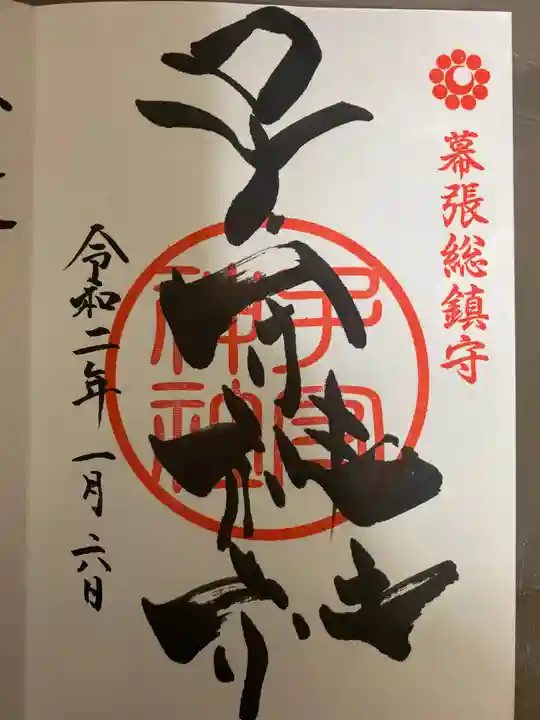 幕張総鎮守
子守神社
子守神社
令和二年一月六日